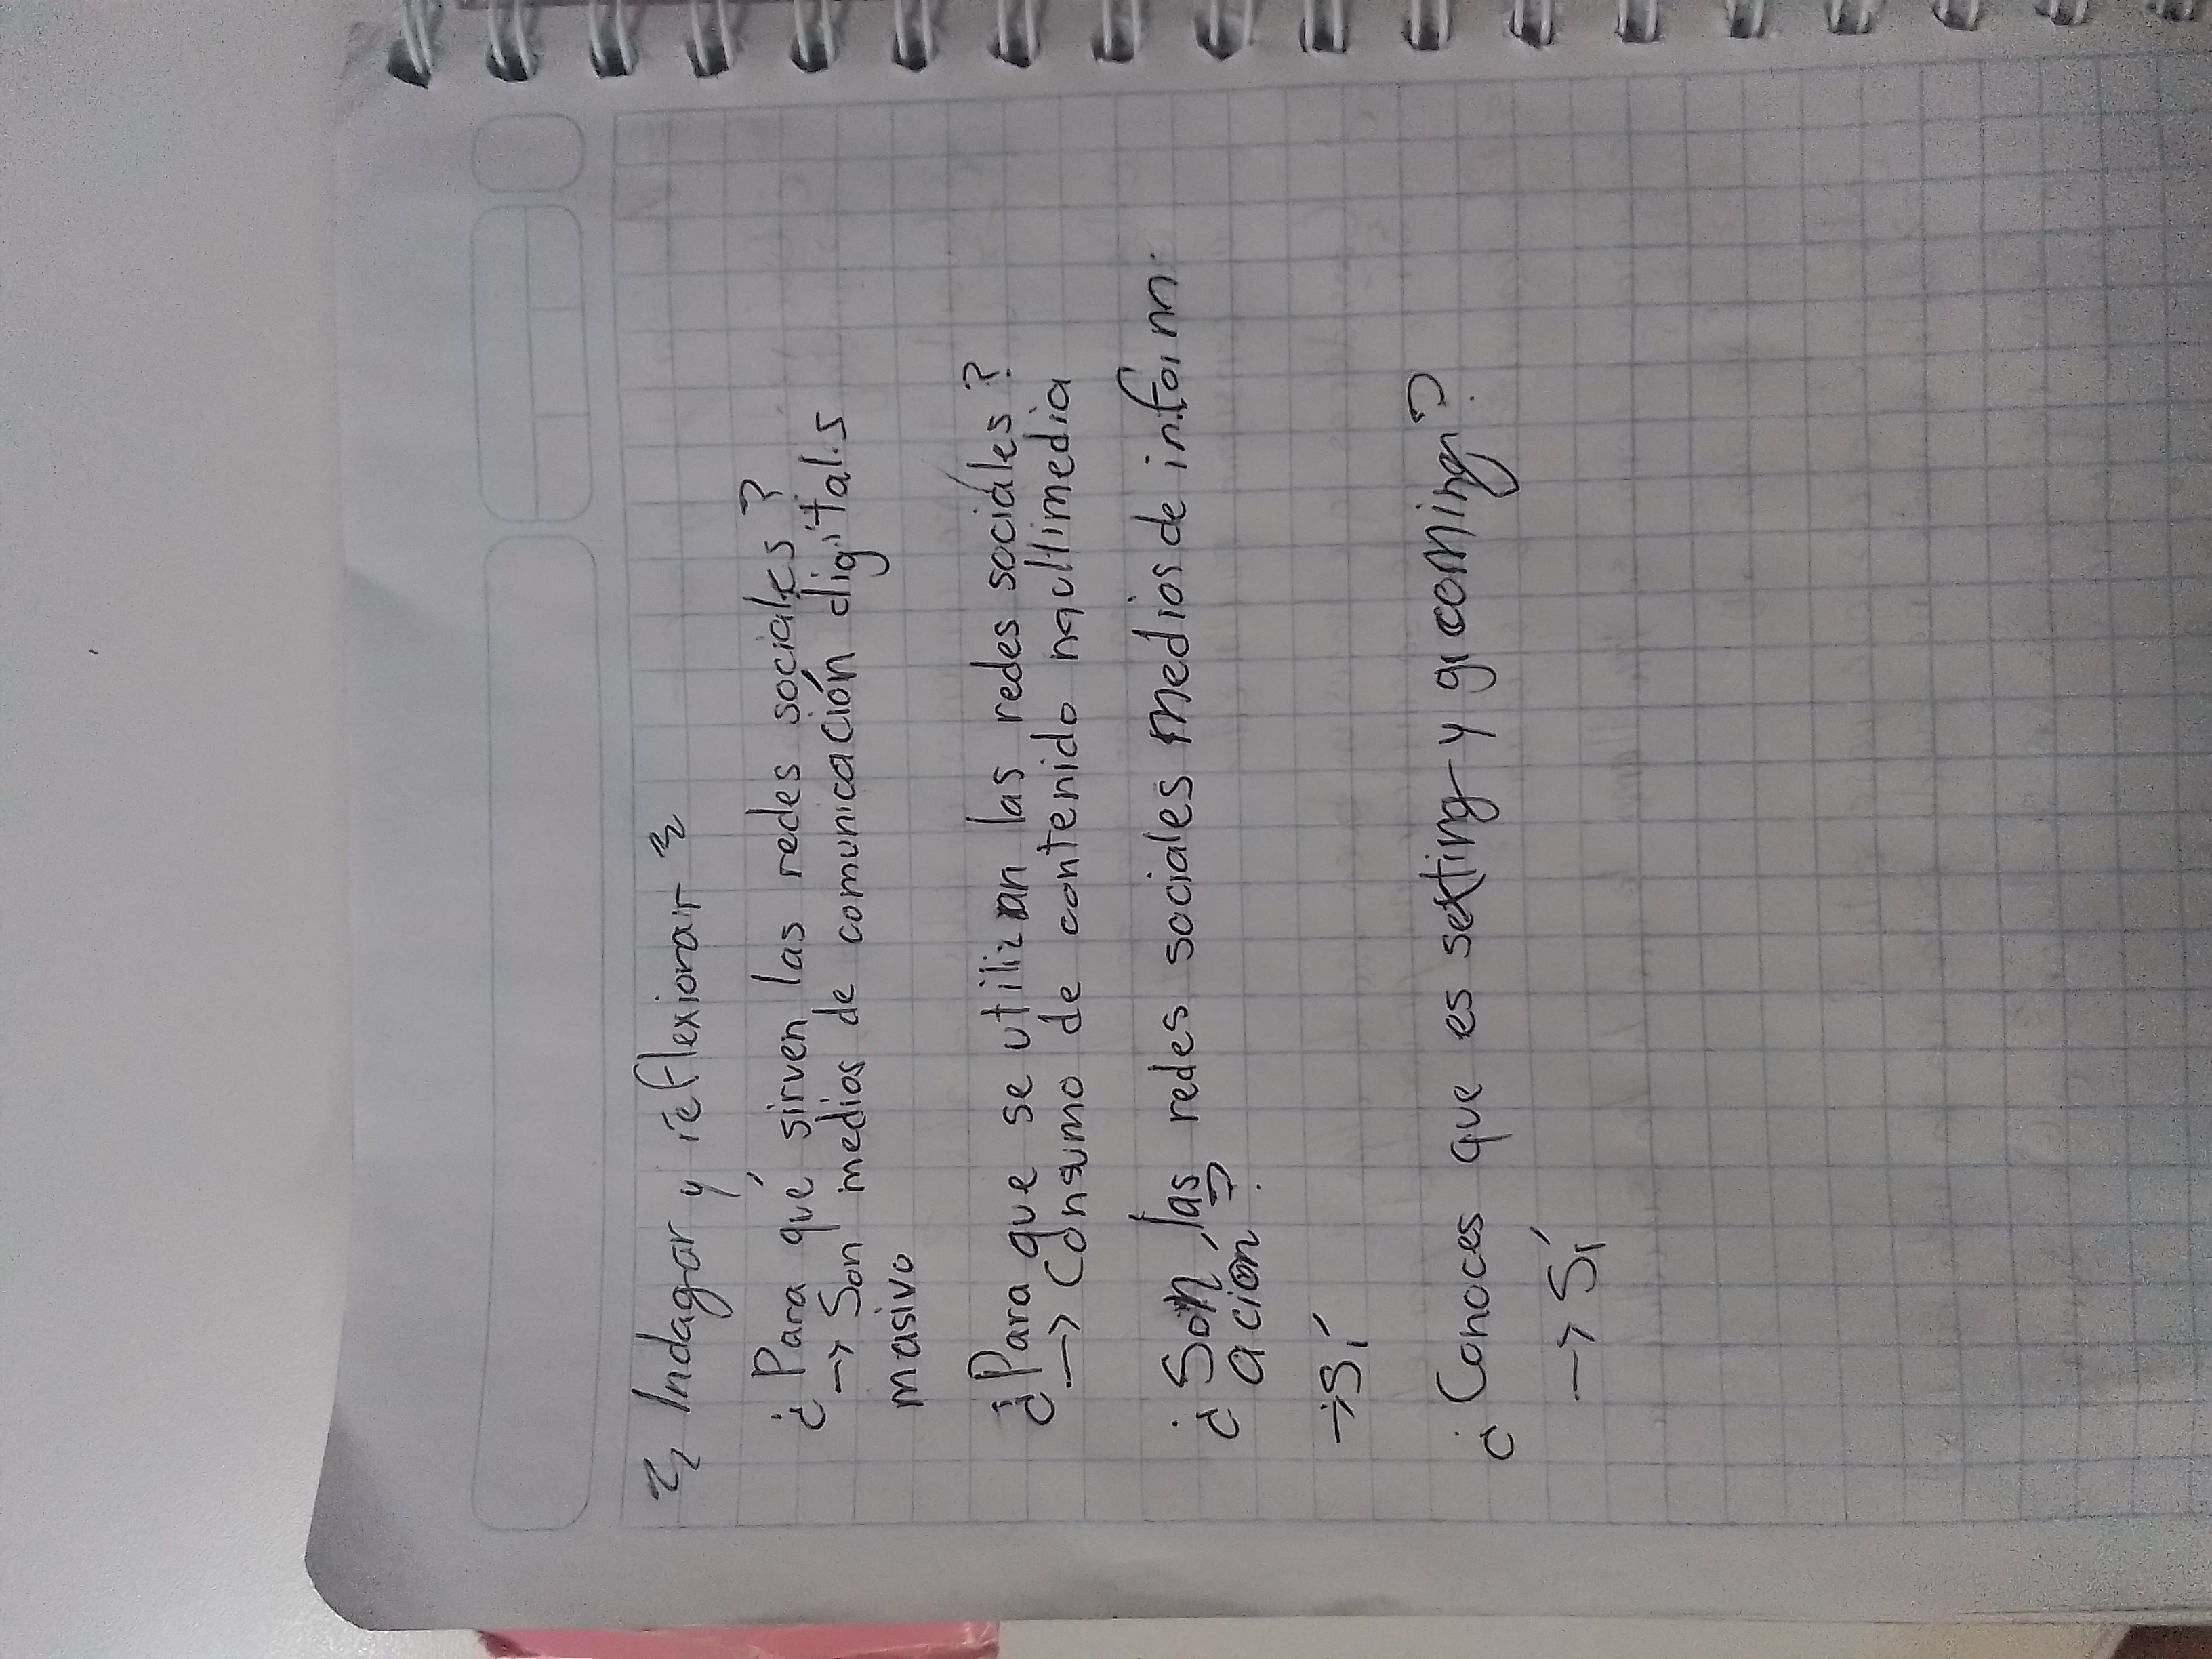 Indagar y reflexionar
¿Para qué sirven las redes sociales?
→ Son medios de comunicación digitales
masivo
¿Para que se utilizan las redes sociales?
→ Consumo de contenido multimedia
¿Son las redes sociales medios de inform
ación?
→ Sí
¿Conoces que es sexting y grooming?
→ Sí